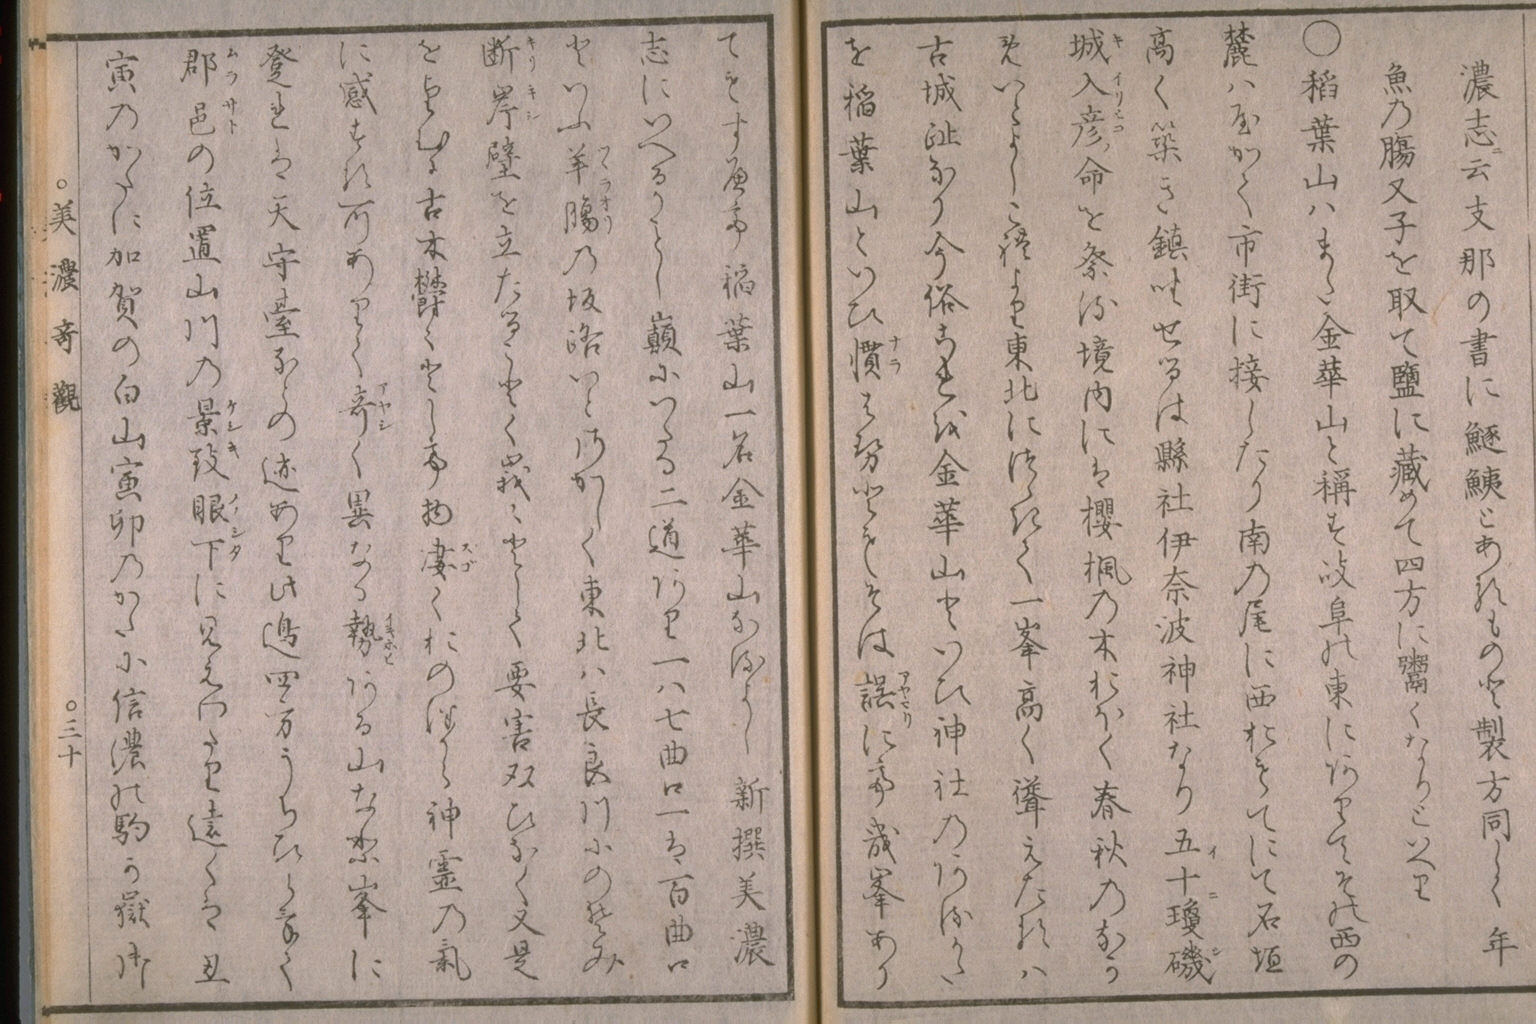 濃志ニ云支那の書に鱁鮧とあれもの也製方同しく年
魚乃膓又子を取て鹽に藏めて四方に鬻くなりと以へり
○稻葉山ハまた金華山と稱す岐阜の東にありて其西の
麓ハ近く市街に接したり南乃尾に西おもてにて石垣
高く築き鎮坐せるは縣社伊奈波神社なり五十瓊磯
城入彦命を祭る境内には櫻楓乃木おほく春秋乃なか
めいとよしこれより東北につゝきて一峯高く聳えたるハ
古城趾なり今俗これを金華山といひ神社乃ある
を稻葉山といひ慣はせとも其は誤にて幾峯あり
てもすへて稻葉山一名金華山なるよし 新撰美濃
志にいへることし巓にいたる二道あり一ハ七曲口一は百曲口
といふ羊膓乃坂路いとさかしく東北ハ長良川にのそみ
断岸壁を立たることく峩々として要害双ひなく又是
をよむに古木欝々として物凄くおのつから神靈乃氣
に感する所ありて奇く異なる勢ある山なれ峯に
登れは天守臺なとの迹あり此邊四方うちひらけて
郡邑の位置山川乃景致眼下に見えわたり遠くは丑
寅乃かたに加賀の白山寅卯乃かたに信濃の駒か嶽御
○美濃奇觀
○三十